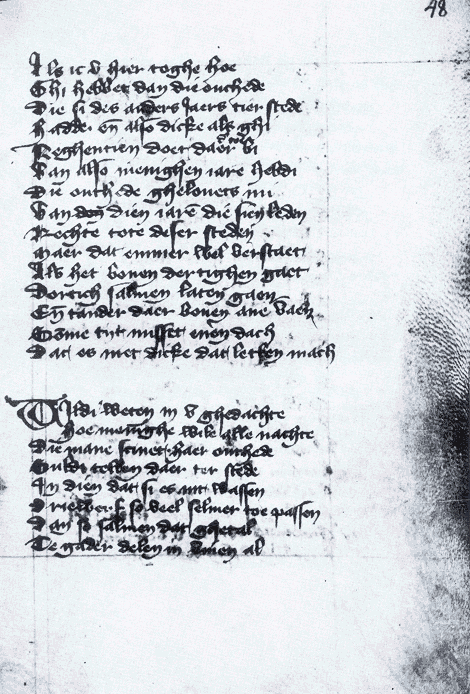 48
Als ic v hier toghe hoe
Ghi hebbet dan die outhede
Die si des anders jaers tier stede
Hadde en also dicke als ghi
Neghentien doet daer bi
Van also menighen iare hebdi
Die outhede ghelouets mi
Van dien iare die sien leden
Rechte tote deser steden
Maer dat emmer wel verstaet
Als het bouen dertighen gaet
Dertich salmen laten gaen
En tander daer bouen ane vaen
Some tijt misset enen dach
Dat es niet dicke dat letten mach
Wildi weten in v ghedachte
Hoe menighe wile alle nachte
Die mane scinet haer outhede
Suldi tellen daer ter stede
In dien dat si es ant wassen
Driewerf so veel selmer toe passen
Dan so salmen dat ghetal
Te gader delen in viuen al